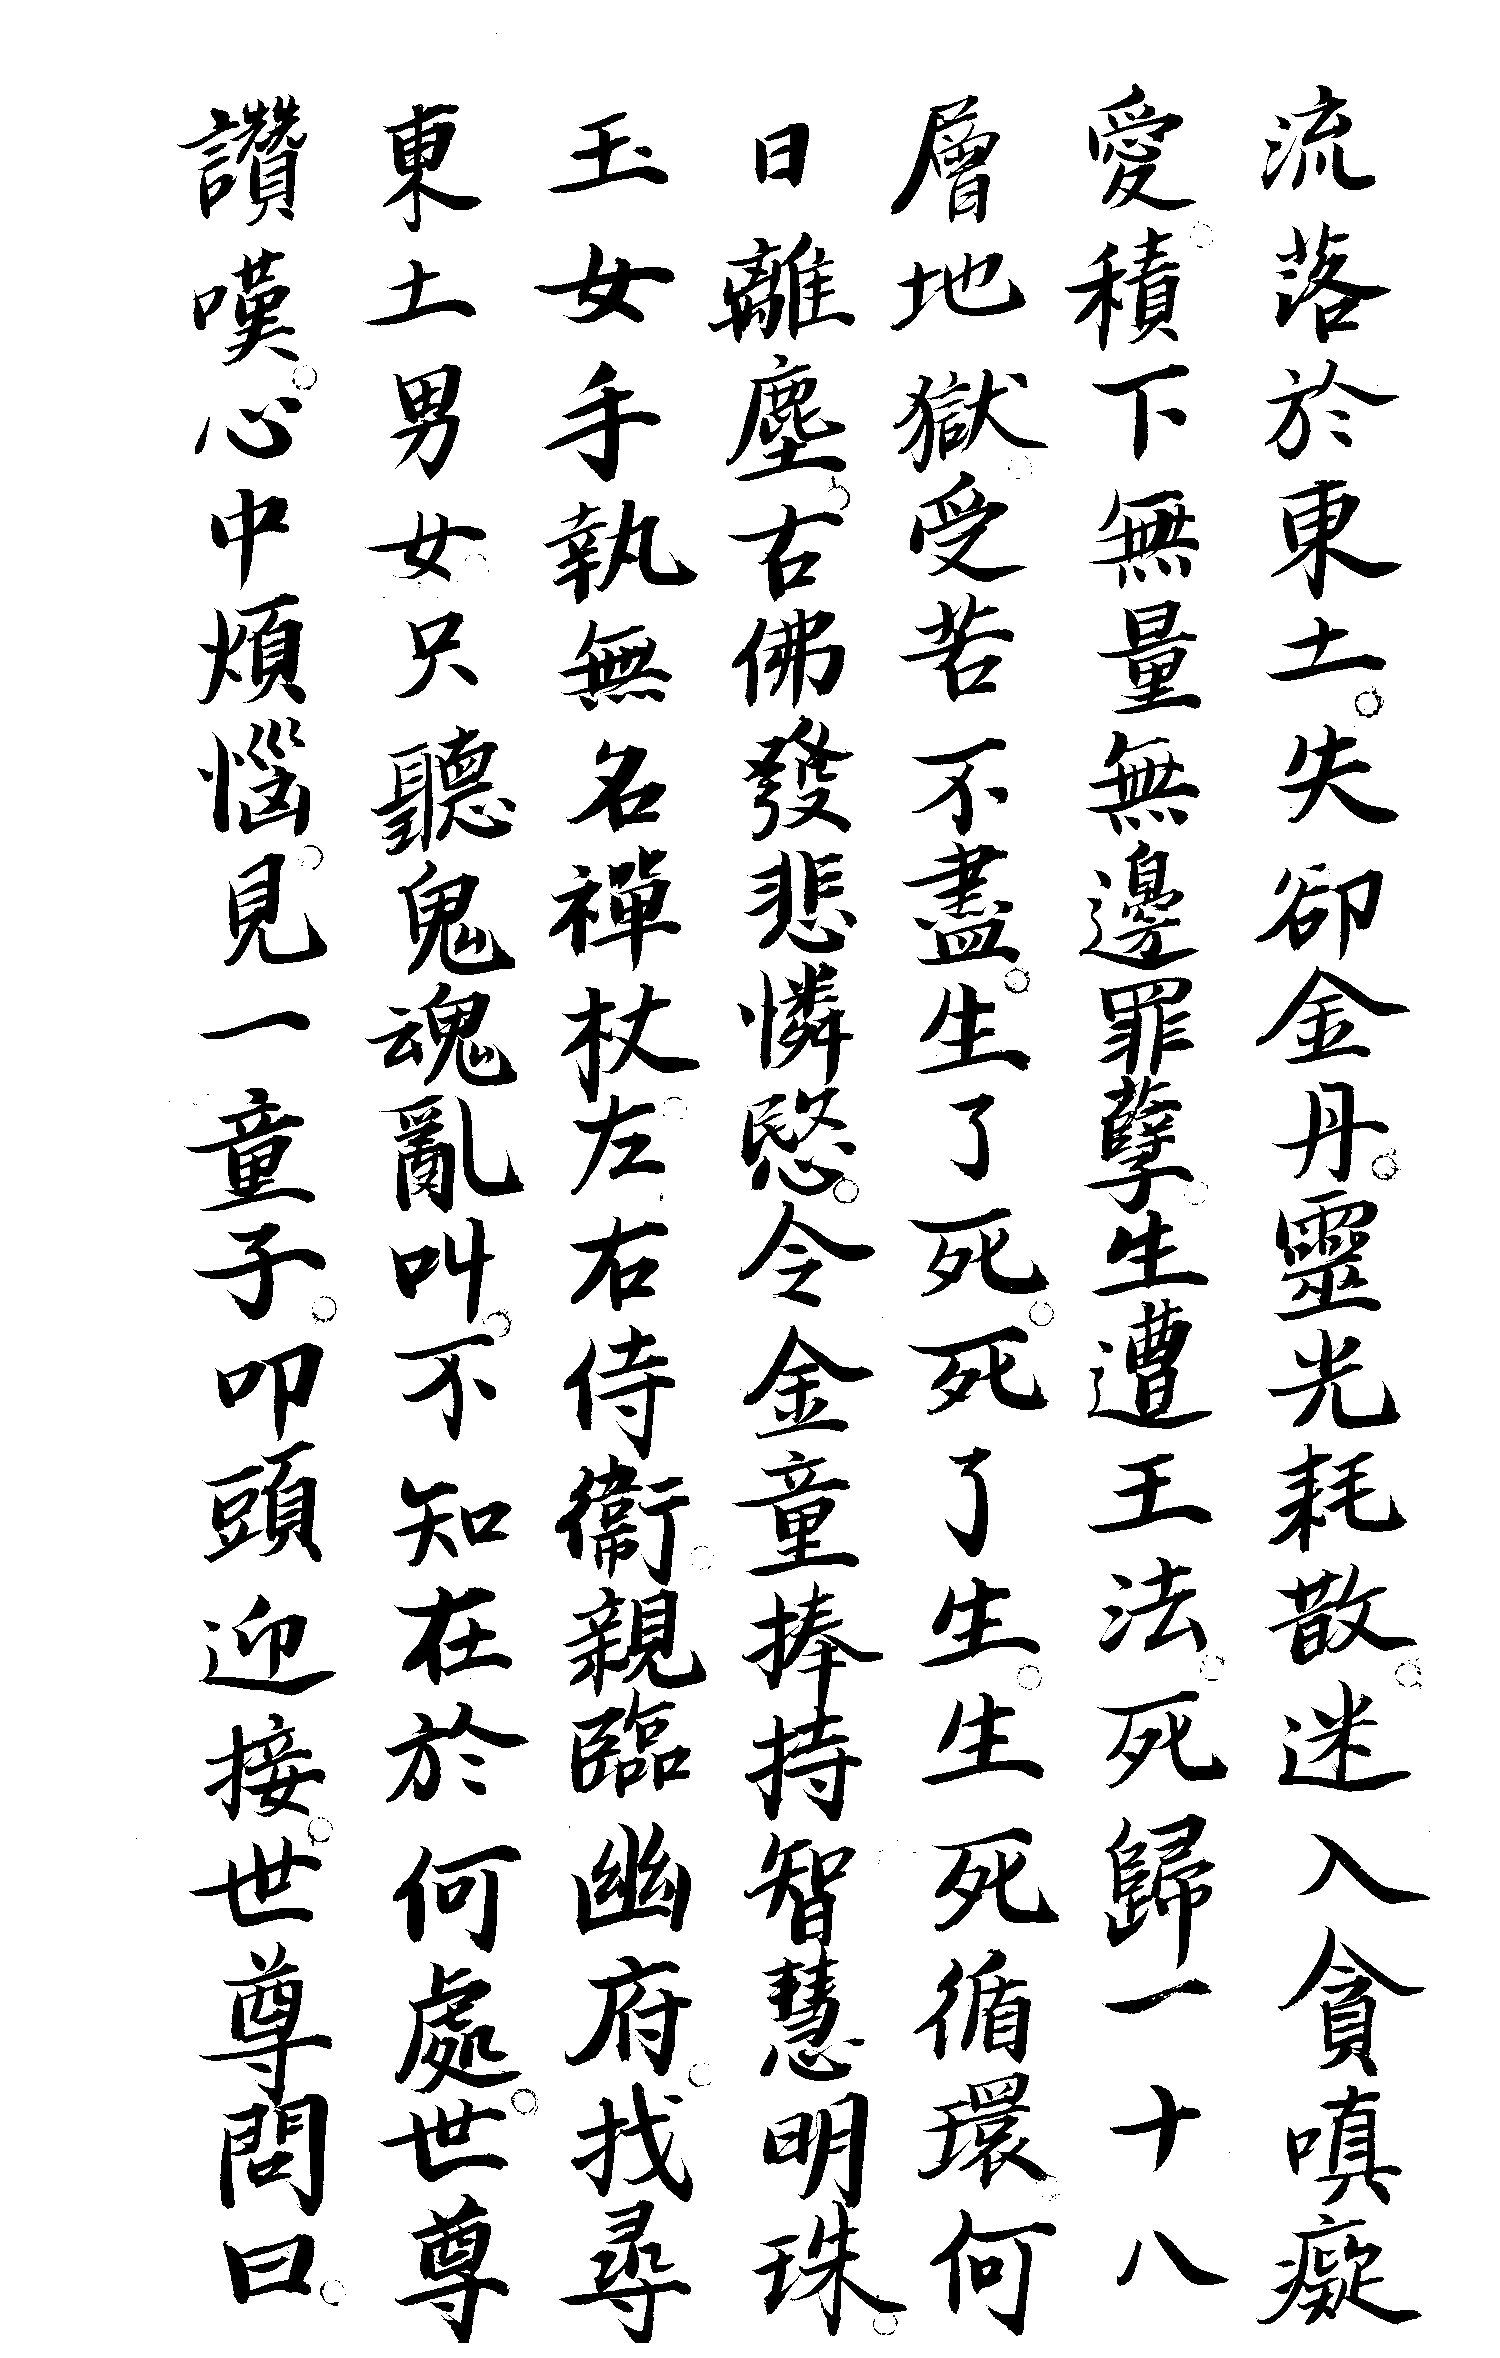 流落於東土。失卻金丹。靈光耗散。迷入貪嗔癡
愛。積下無量無邊罪孽。生遭王法。死歸一十八
層地獄。受苦不盡。生了死。死了生。生死循環。何
日離塵。古佛發悲憐愍。令金童捧持智慧明珠。
玉女手執無名禪杖。左右侍衛。親臨幽府。找尋
東土男女。只聽鬼魂亂叫。不知在於何處。世尊
讚嘆。心中煩惱。見一童子。叩頭迎接。世尊問曰。